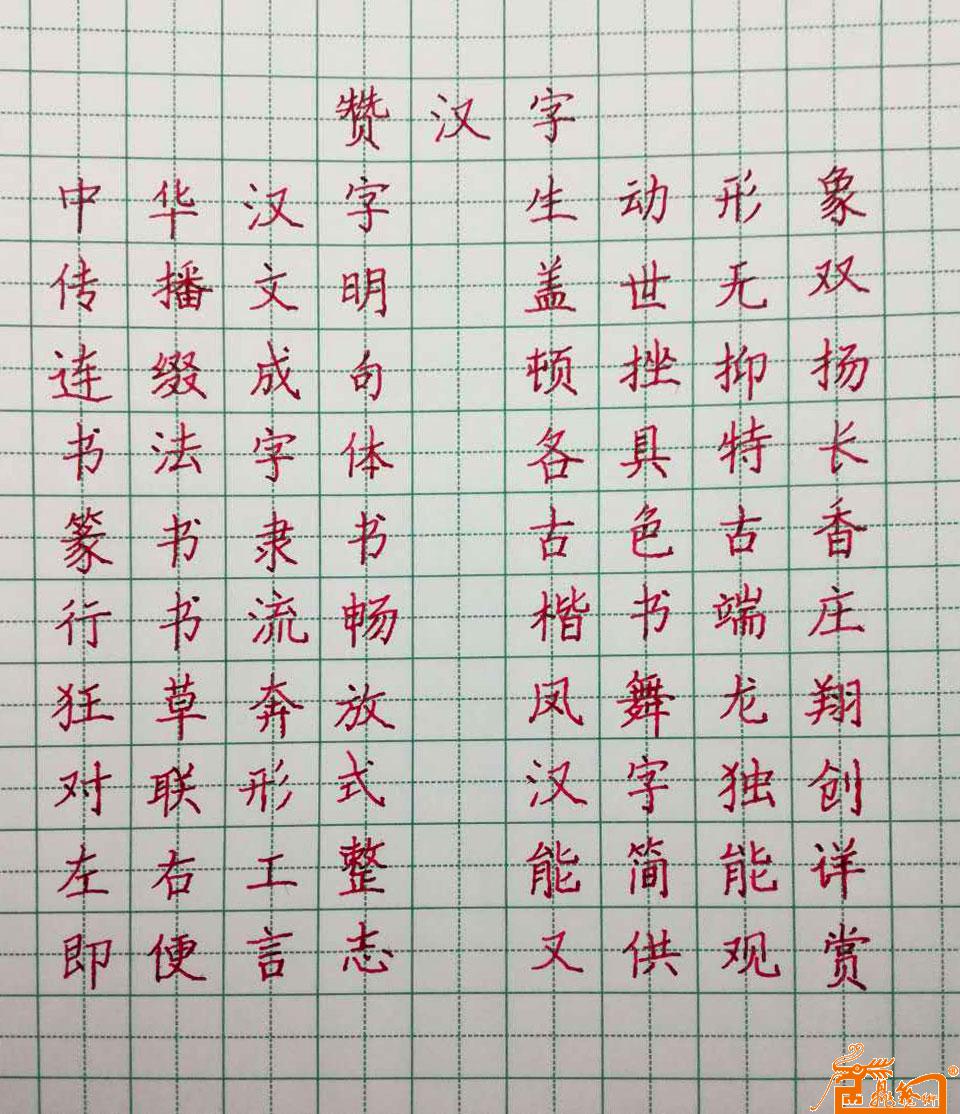 赞汉字
中华汉字 生动形象
传播文明 盖世无双
连缀成句 顿挫抑扬
书法字体 各具特长
篆书隶书 古色古香
行书流畅 楷书端庄
狂草奔放 凤舞龙翔
对联形式 汉字独创
左右工整 能简能详
即便言志 又供观赏